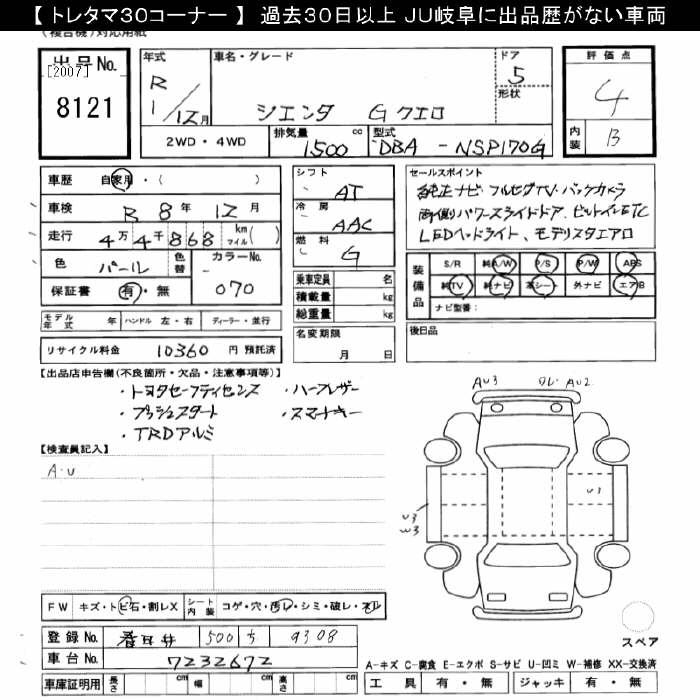 【 トレタマ30コーナー 】 過去30日以上 JU岐阜に出品歴がない車両
(複合機)対応用紙
出品No.
[2007]
8121
年式
R
1/12月
車名・グレード
シエンタ Gクエロ
ドア
5
形状
評価点
4
内装
B
2WD・4WD
排気量
1500
cc
型式
DBA - NSP170G
車歴
自家用・( )
車検
R 8年 12月
走行
4万4千868
km
マイル( )
色
パール
色替
カラーNo.
070
保証書
有・無
シフト
AT
冷房
AAC
燃料
G
乗車定員 名
積載量 kg
総重量 kg
名変期限
月 日
セールスポイント
純正ナビ・フルセグTV・バックカメラ
両側パワースライドドア、ビルトインETC
LEDヘッドライト、モデリスタエアロ
装備品
S/R 純A/W P/S P/W ABS
純TV 純ナビ 革シート 外ナビ エアB
ナビ型番:
後日品
モデル年式 年
ハンドル 左・右
ディーラー・並行
リサイクル料金 10360 円 預託済
【出品店申告欄(不良箇所・欠品・注意事項等)】
・トヨタセーフティセンス ・ハーフレザー
・プッシュスタート ・スマートキー
・TRDアルミ
【検査員記入】
A・U
AU3
ワレ・AU2
U1
U3
W3
スペア
FW
キズ・トビ石・割レX
シート内装
コゲ・穴・汚レ・シミ・破レ・スレ
登録No.
春日井 500 ち 9308
車台No.
7232672
車庫証明用
長さ cm 幅 cm 高さ cm
A-キズ C-腐食 E-エクボ S-サビ U-凹ミ W-補修 XX-交換済
工具 有・無 ジャッキ 有・無